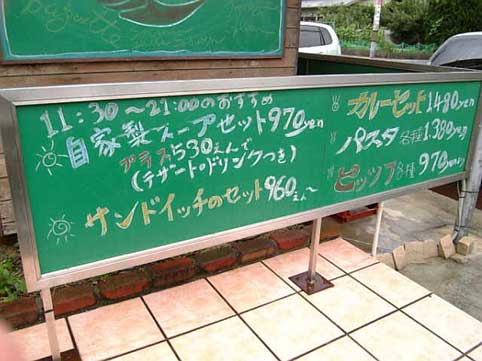 11:30〜21:00のおすすめ
自家製スープセット970yen
プラス530えんで
(デザート・ドリンクつき)
サンドイッチのセット960えん〜
カレーセット1480yen
パスタ各種1380yen
ピッツァ各種970yen〜